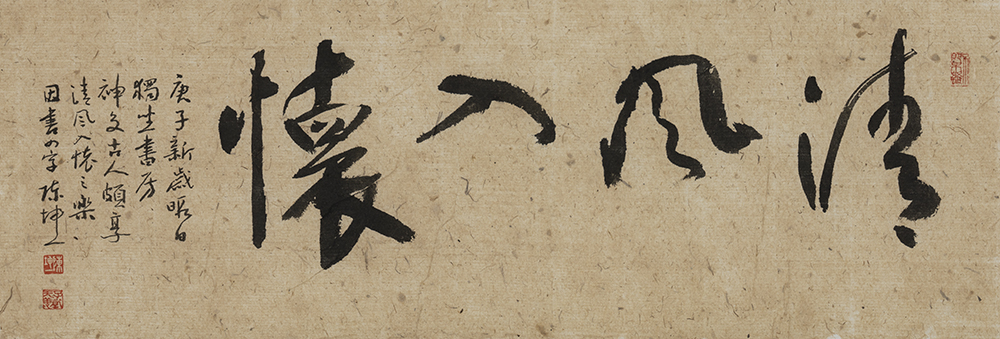 清风入懷
庚子新歲暇日
獨坐書房
神交古人頗享
清风入懷之樂
因書四字陈坤一